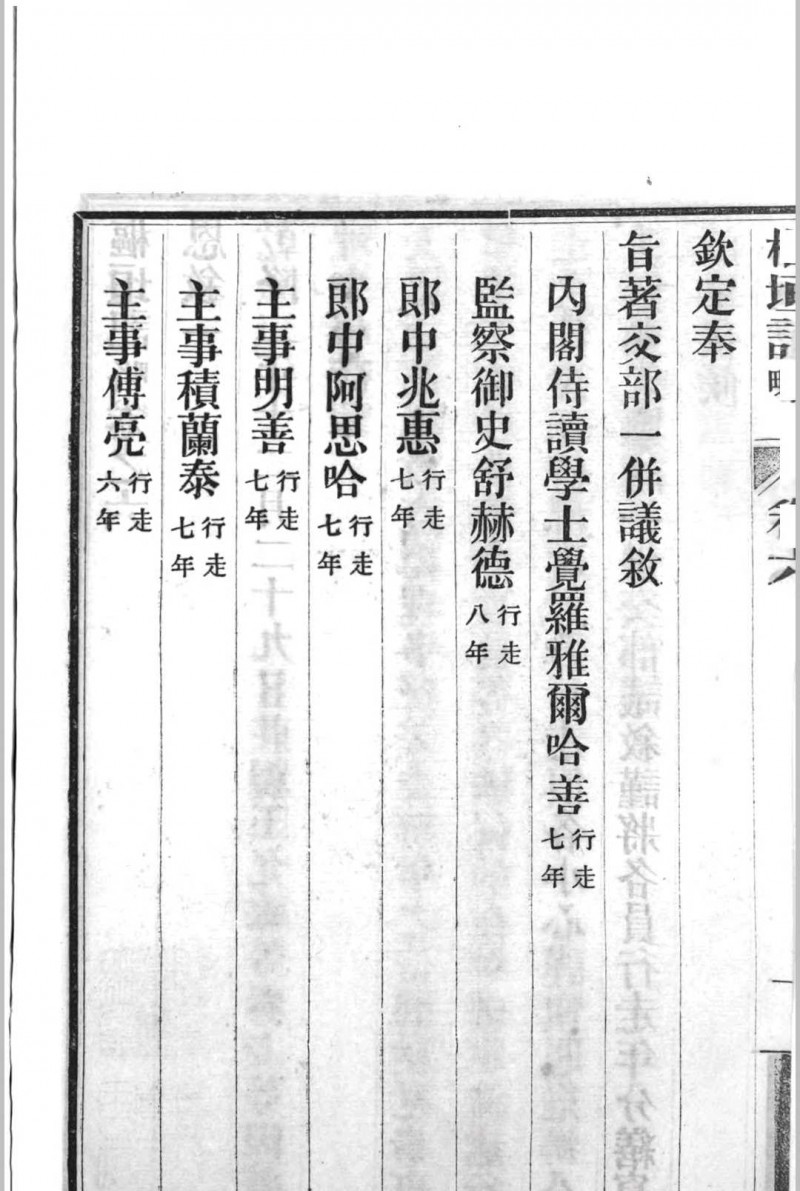 樞垣記略 卷六 一
欽定奉
旨著交部一併議敘
內閣侍讀學士覺羅雅爾哈善行走七年
監察御史舒赫德行走八年
郎中兆惠行走七年
郎中阿思哈行走七年
主事明善行走七年
主事積蘭泰行走七年
主事傅亮行走六年